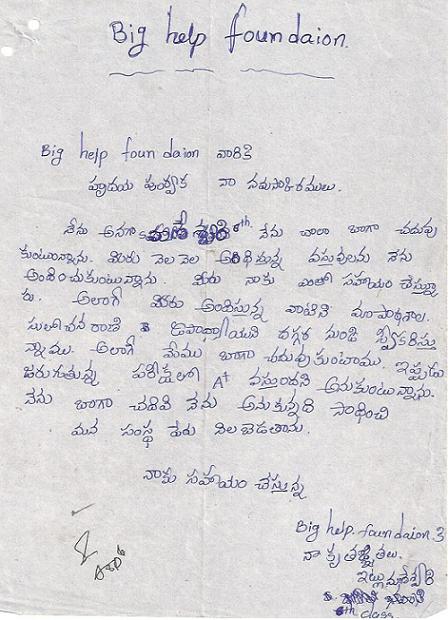 Big help foundaion.
Big help foundaion వారికి
హృదయ పూర్వక నా నమసుకారములు.
నేను అనగా 6th నేను చాలా బాగా చదువు
కుంటున్నాను. మీరు నెల నెల అందిస్తున్న వస్తువులను నేను
అందించుకుంటున్నాను. మీరు నాకు ఎంతో సహాయం చేస్తున్నా
రు. అలాగే మీరు అందిస్తున్న వాటిని మా పాఠశాల.
సులోచన రాణి ఉపాధ్యాయుని దగ్గర నుండి స్వీకరిస్తు
న్నాము. అలాగే మేము బాగా చదువుకుంటాము. ఇప్పుడు
జరుగుతున్న పరీక్షలో A+ వస్తుందని అనుకుంటున్నాను.
నేను బాగా చదివి నేను అనుకున్నది సాధించి
మన సంస్థ పేరు నిలబెడతాను.
నాకు సహాయం చేస్తున్న
Big help. foundaion.3
నా కృతజ్ఞతలు.
6th class.